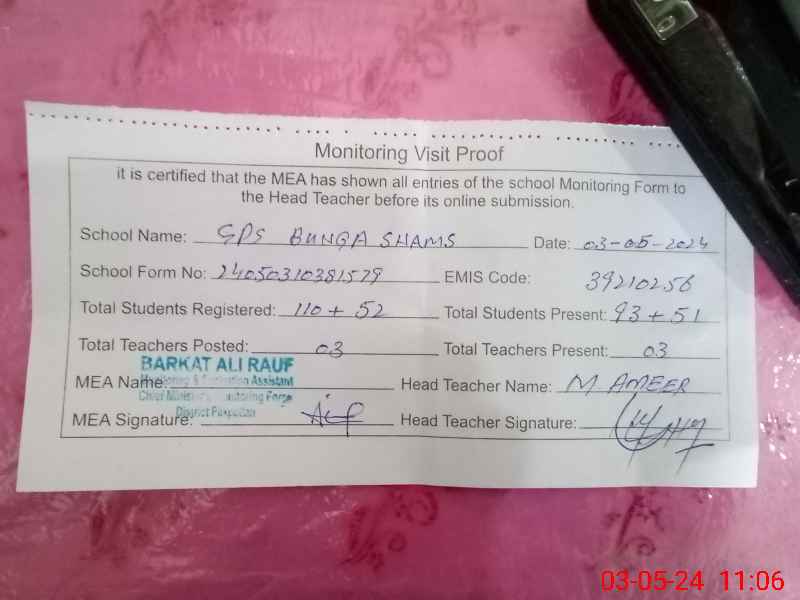 Monitoring Visit Proof
it is certified that the MEA has shown all entries of the school Monitoring Form to
the Head Teacher before its online submission.
School Name: GPS BUNGA SHAMS Date: 03-05-2024
School Form No: 24050310381579 EMIS Code: 39210256
Total Students Registered: 110 + 52 Total Students Present: 93 + 51
Total Teachers Posted: 03 Total Teachers Present: 03
BARKAT ALI RAUF
MEA Name: Head Teacher Name: M AMEER
Monitoring & Evaluation Assistant
Chief Minister's Monitoring Force
District Pakpattan
MEA Signature: Head Teacher Signature:
03-05-24 11:06